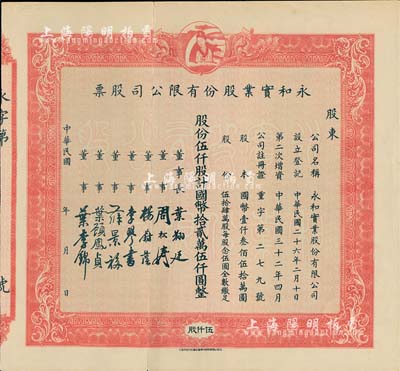 上海陽明拍賣
www.yangmingauction.com
永和實業股份有限公司股票
股東
公司名稱 永和實業股份有限公司
設立登記 中華民國二十六年二月十日
第二次增資 中華民國三十二年四月
公司註冊證 重字第二七九號
股本 國幣壹仟叁佰伍拾萬圓
股份 伍拾肆萬股每股伍圓全數繳足
股份伍仟股計國幣拾貳萬伍仟圓整
董事長 葉翔廷
董事 周松濤
董事
董事
董事
董事 葉顧鳳貞
董事 葉李錦
中華民國 年 月 日
伍仟股
永字第
號
上海陽明拍賣
www.yangmingauction.com